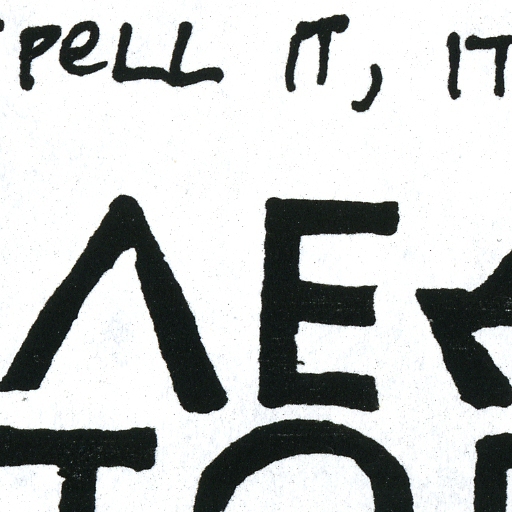 PELL IT, IT
ΛE
TO